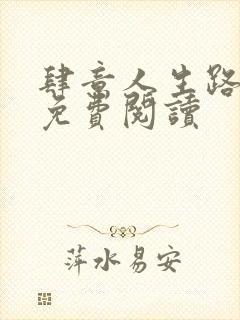 肆意人生路
免費閱讀
萍水易安